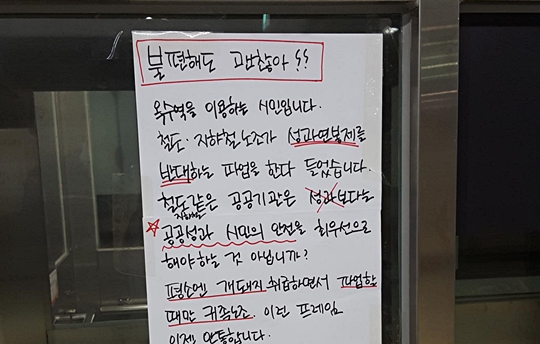 불편해도 괜찮아 !!
옥수역을 이용하는 시민입니다.
철도·지하철노조가 성과연봉제를
반대하는 파업을 한다 들었습니다.
철도같은 공공기관은 성과보다는
지하철
공공성과 시민의 안전을 최우선으로
해야하는 것 아닙니까?
평소엔 개돼지 취급하면서 파업할
때만 귀족노조. 이런 프레임
이제 안통합니다.